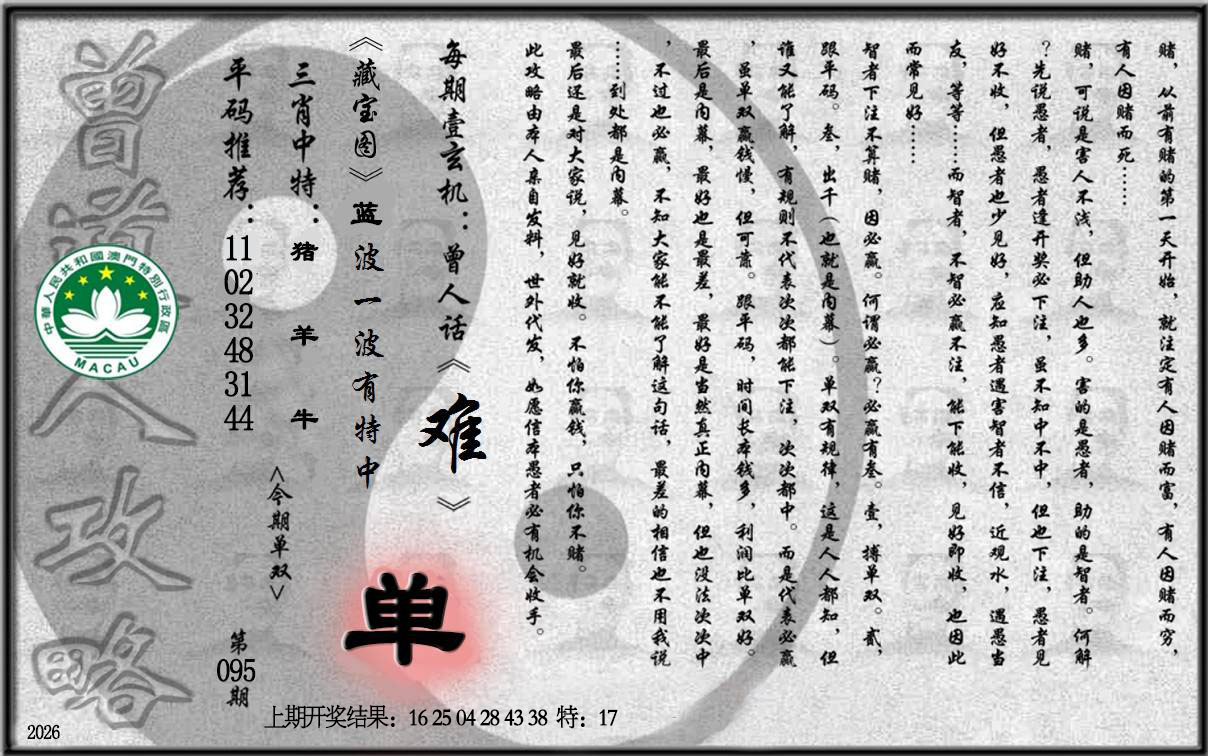 赌，从前有赌的第一天开始，就注定有人因赌而富，有人因赌而穷，
有人因赌而死……
赌，可说是害人不浅，但助人也多。害的是愚者，助的是智者。何解
？先说愚者，愚者逢开奖必下注，虽不知中不中，但也下注，愚者见
好不收，但愚者也少见好，应知愚者遇害智者不信，近观水，遇愚当
友，等等……而智者，不智必赢不注，能下能收，见好即收，也因此
而常见好……
智者下注不算赌，因必赢。何谓必赢？必赢有叁。壹，搏单双。贰，
跟平码。叁，出千（也就是内幕）。单双有规律，这是人人都知，但
谁又能了解，有规则不代表次次都能下注，次次都中。而是代表必赢
，虽单双赢钱慢，但可靠。跟平码，时间长本钱多，利润比单双好。
最后是内幕，最好也是最差，最好是当然真正内幕，但也没法次次中
，不过也必赢，不知大家能不能了解这句话，最差的相信也不用我说
……到处都是内幕。
最后还是对大家说，见好就收。不怕你赢钱，只怕你不赌。
此攻略由本人亲自发料，世外代发，如愿信本愚者必有机会收手。
每期壹玄机：曾人话《难》
《藏宝图》蓝波一波有特中
单
三肖中特：猪羊牛
<今期单双>
平码推荐：11 02 32 48 31 44
第095期
曾道人攻略
中華人民共和國澳門特別行政區
MACAU
上期开奖结果：16 25 04 28 43 38 特：17
2026